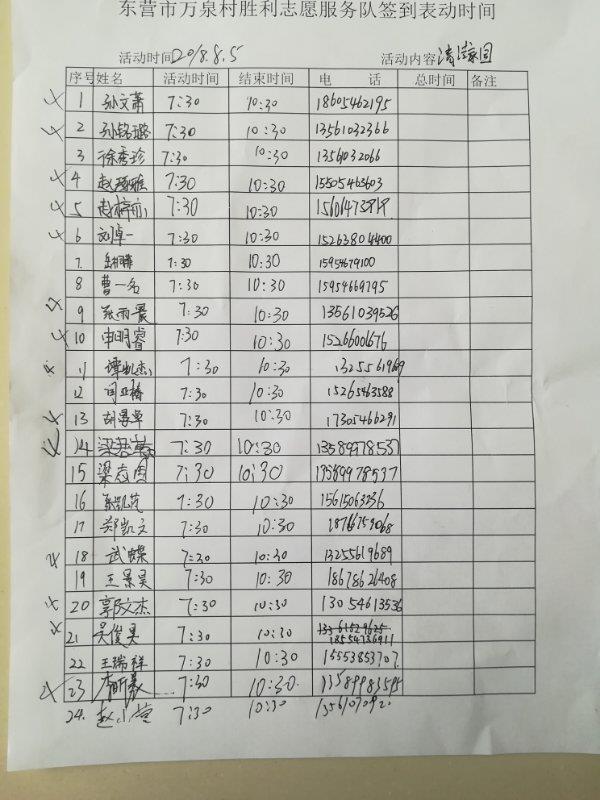 东营市万泉村胜利志愿服务队签到表动时间
活动时间2018.8.5 活动内容清凉园
序号 姓名 活动时间 结束时间 电 话 总时间 备注
1 孙文萧 7:30 10:30 18605462195
2 孙铭璐 7:30 10:30 13561032366
3 徐秀珍 7:30 10:30 1356032066
4 7:30 10:30 15505463603
5 7:30 10:30
6 刘卓一 7:30 10:30 15263804400
7. 7:30 10:30 15954679100
8 曹一名 7:30 10:30 15954669795
9 张雨晨 7:30 10:30 13561039526
10 申明睿 7:30 10:30 15266001676
11 谭凯杰 7:30 10:30
12 7:30 10:30 15265463588
13 胡 7:30 10:30 17305466291
14 梁 7:30 10:30 13589978537
15 梁志国 7:30 10:30 13589978537
16 7:30 10:30 15615063236
17 郑凯文 7:30 10:30 18766759068
18 武蝶 7:30 10:30 13255619689
19 王景昊 7:30 10:30 18678626408
20 郭文杰 7:30 10:30 13054613536
21 吴俊昊 7:30 10:30
18554736911
22 王瑞祥 7:30 10:30 15553853707
23 7:30 10:30. 13589983595
24. 赵小莹 7:30 10:30